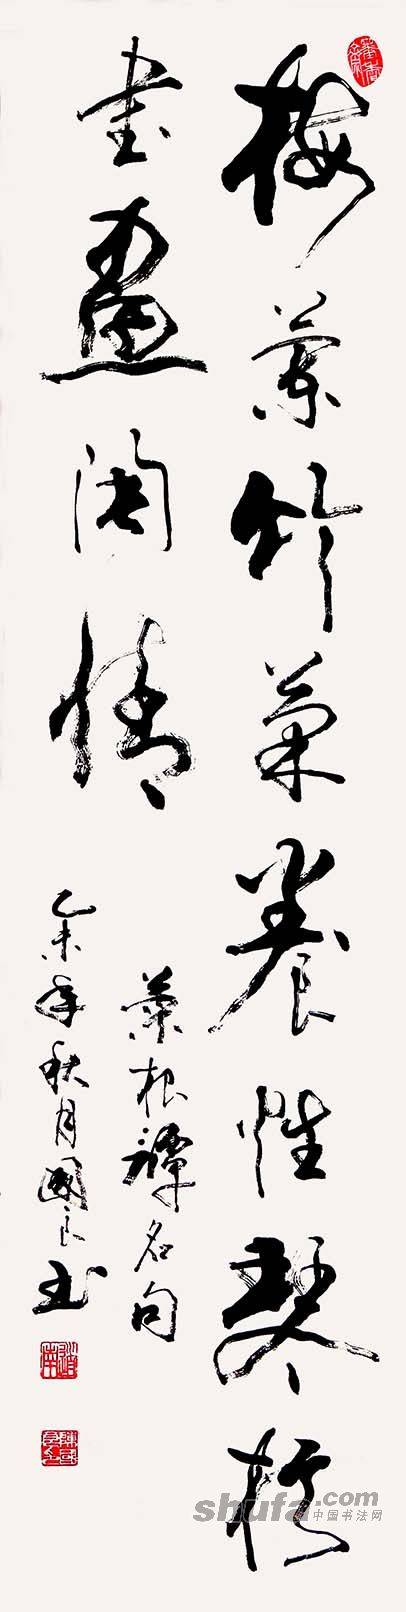 梅蘭竹菊養性琴棋
書畫陶情
菜根譚名句
乙未年秋月國良书
shufa.com
中国书法网